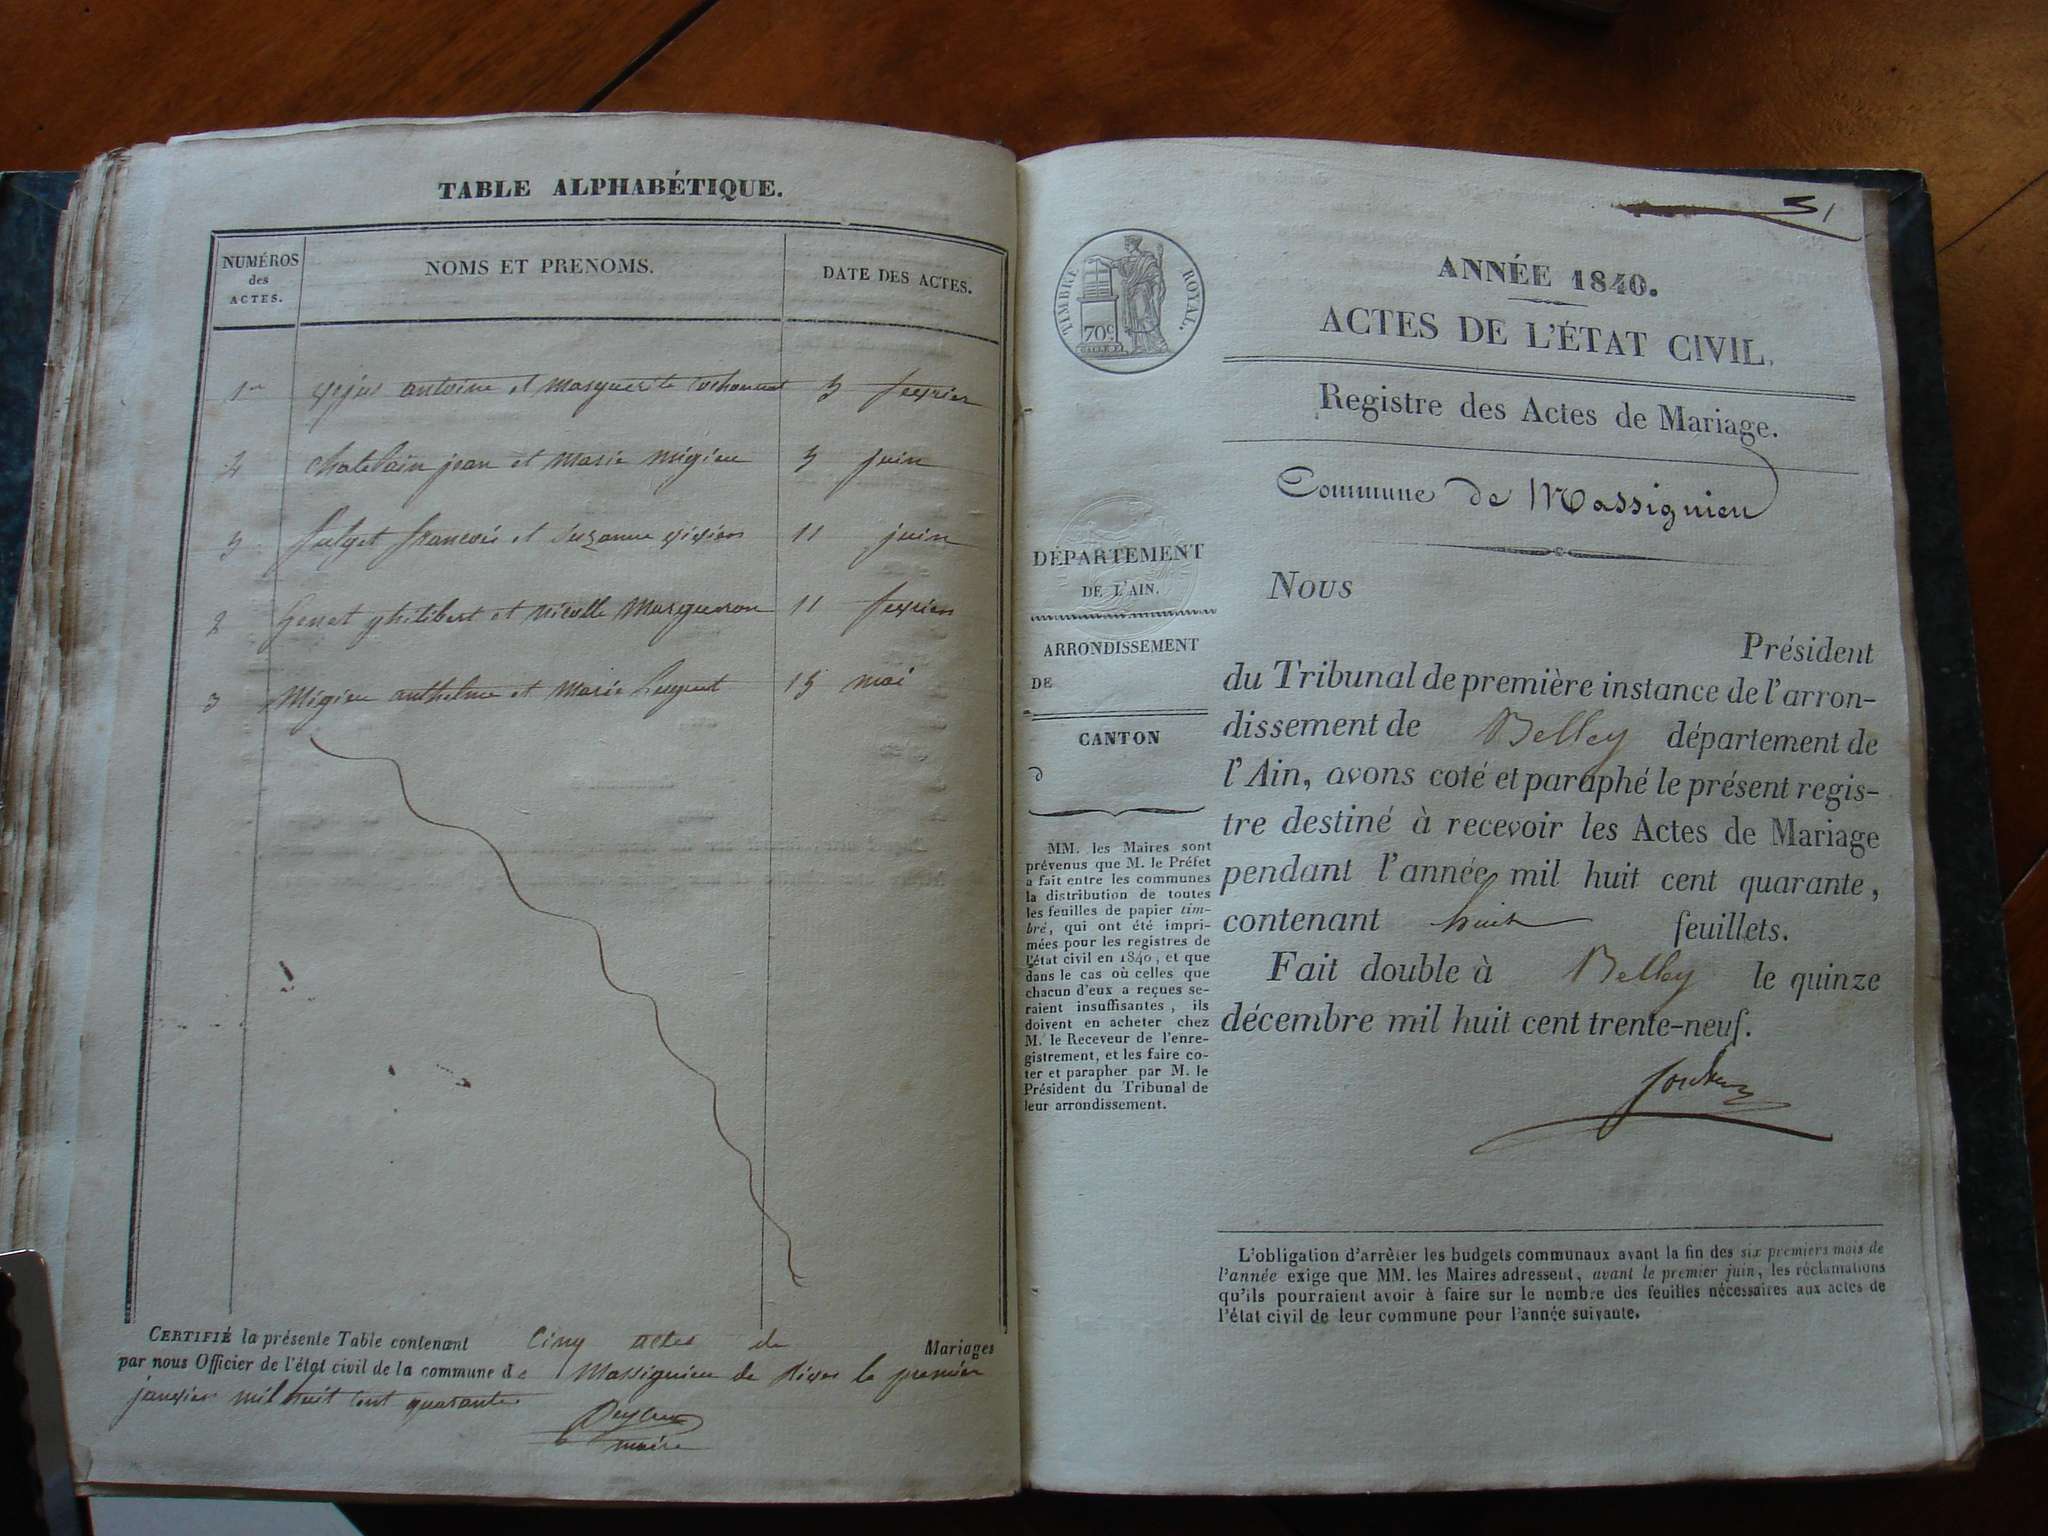 TABLE ALPHABÉTIQUE.
NUMÉROS
des
ACTES.
NOMS ET PRENOMS.
DATE DES ACTES.
antoine et Marguerite 3 fevrier
4 chatelain jean et Marie Migieu 3 juin
5 françois et Suzanne 11 juin
2 philibert et Nicolle Margueron 11 fevrier
3 Migieu anthelme et Marie 15 mai
CERTIFIÉ la présente Table contenant Cinq actes de Mariages
par nous Officier de l'état civil de la commune de Massignieu de Rives le premier
janvier mil huit cent quarante
maire
51
TIMBRE ROYAL.
70c
ANNÉE 1840.
ACTES DE L'ÉTAT CIVIL.
Registre des Actes de Mariage.
Commune de Massignieu
DÉPARTEMENT
DE L'AIN.
ARRONDISSEMENT
DE
CANTON
d
MM. les Maires sont
prévenus que M. le Préfet
a fait entre les communes
la distribution de toutes
les feuilles de papier tim-
bré, qui ont été impri-
mées pour les registres de
l'état civil en 1840, et que
dans le cas où celles que
chacun d'eux a reçues se-
raient insuffisantes, ils
doivent en acheter chez
M. le Receveur de l'enre-
gistrement, et les faire co-
ter et parapher par M. le
Président du Tribunal de
leur arrondissement.
Nous
Président
du Tribunal de première instance de l'arron-
dissement de Belley département de
l'Ain, avons coté et paraphé le présent regis-
tre destiné à recevoir les Actes de Mariage
pendant l'année mil huit cent quarante,
contenant huit feuillets.
Fait double à Belley le quinze
décembre mil huit cent trente-neuf.
L'obligation d'arrêter les budgets communaux avant la fin des six premiers mois de
l'année exige que MM. les Maires adressent, avant le premier juin, les réclamations
qu'ils pourraient avoir à faire sur le nombre des feuilles nécessaires aux actes de
l'état civil de leur commune pour l'année suivante.